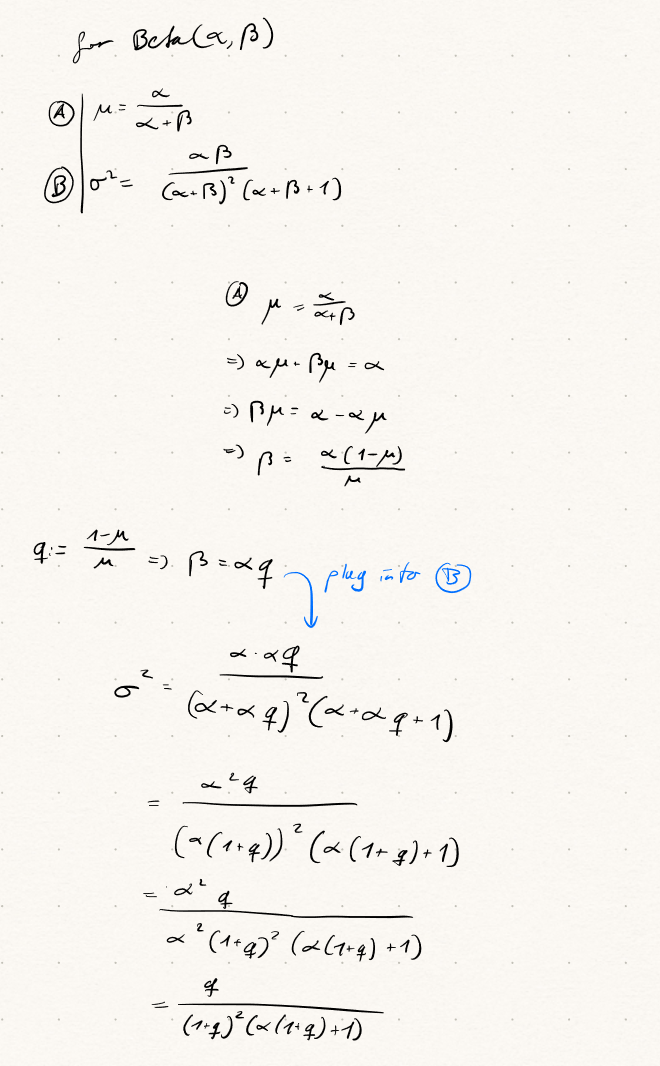 for Beta(α, β)
Ⓐ μ = α/(α + β)
Ⓑ σ² = αβ/((α+β)²(α + β + 1))
Ⓐ μ = α/(α+β)
=> αμ + βμ = α
=> βμ = α - αμ
=> β = α(1-μ)/μ
q := (1-μ)/μ => β = αq plug into Ⓑ
σ² = α·αq/((α+αq)²(α+αq+1))
= α²q/((α(1+q))²(α(1+q)+1))
= α²q/(α²(1+q)²(α(1+q)+1))
= q/((1+q)²(α(1+q)+1))